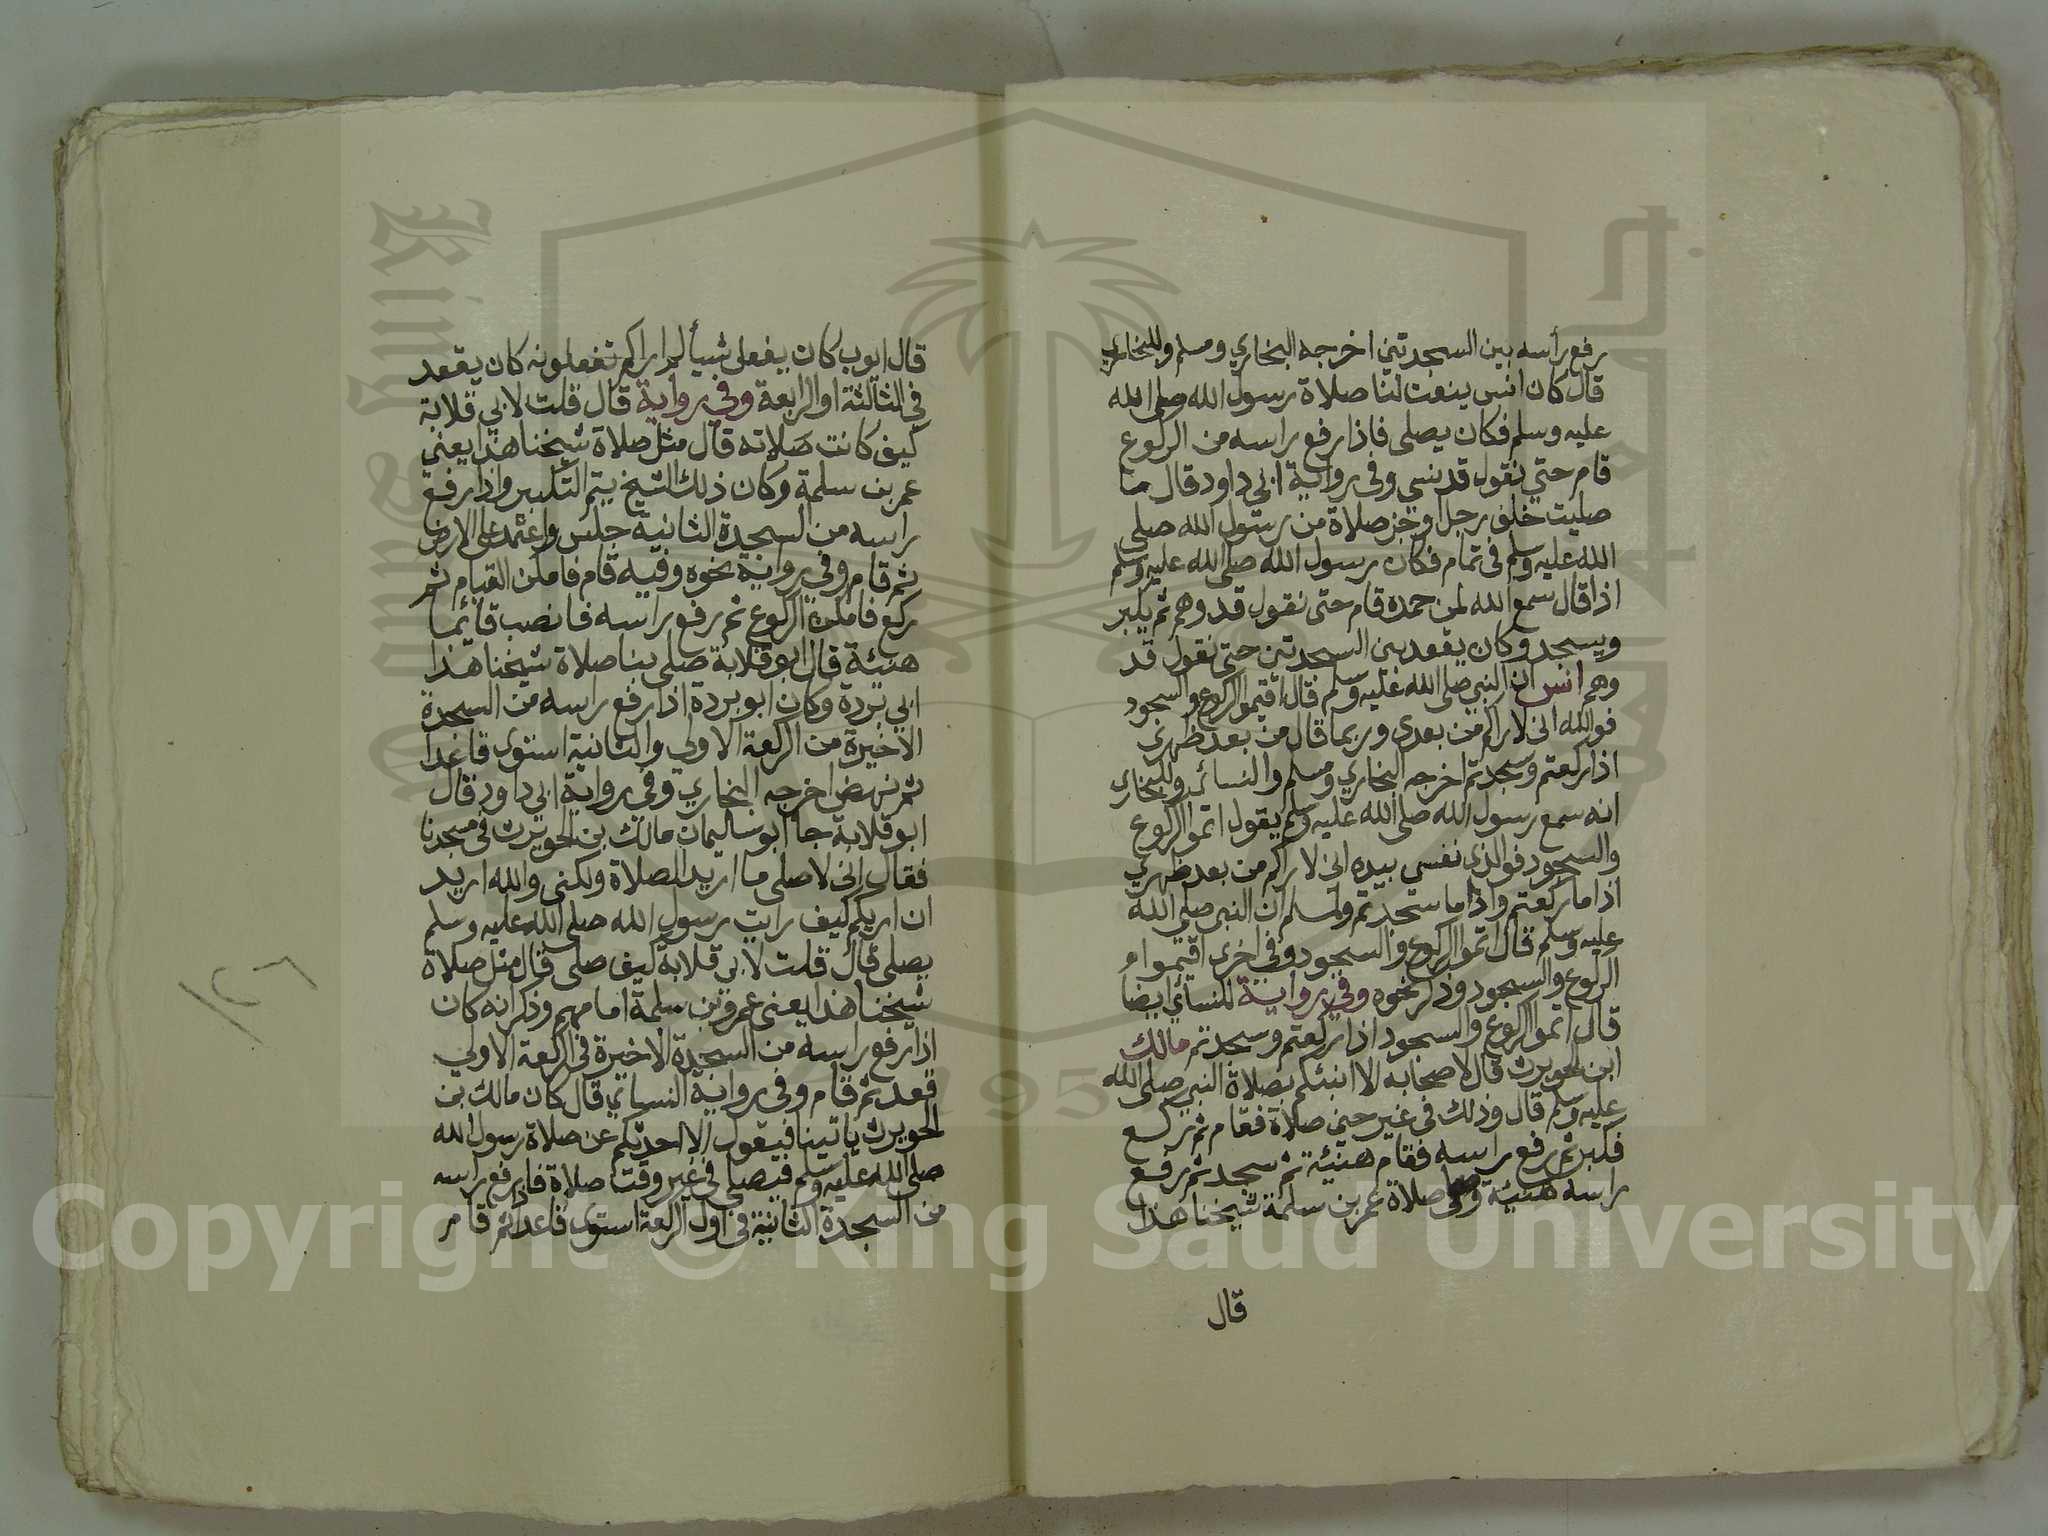 رفع رأسه بين السجدتين اخرجه البخاري ومسلم وللبخاري
قال كان انس ينعت لنا صلاة رسول الله صلى الله
عليه وسلم فكان يصلى فاذا رفع راسه من الركوع
قام حتي نقول قد نسي وفى رواية ابي داود قال ما
صليت خلف رجل اوجز صلاة من رسول الله صلى
الله عليه وسلم فى تمام فكان رسول الله صلى الله عليه وسلم
اذا قال سمع الله لمن حمده قام حتى نقول قد وهم ثم يكبر
ويسجد وكان يقعد بين السجدتين حتى نقول قد
وهم انس ان النبي صلى الله عليه وسلم قال اقيموا الركوع والسجود
فوالله انى لاراكم من بعدى وربما قال من بعد ظهرى
اذا ركعتم وسجدتم اخرجه البخاري ومسلم والنسائى وللبخاري
انه سمع رسول الله صلى الله عليه وسلم يقول اتموا الركوع
والسجود فوالذى نفسي بيده انى لاراكم من بعد ظهري
اذا ما ركعتم واذا ما سجدتم ولمسلم ان النبي صلى الله
عليه وسلم قال اتموا الركوع والسجود وفى اخرى اقيموا
الركوع والسجود وذكر نحوه وفي رواية للنسائي ايضا
قال اتموا الركوع والسجود اذا ركعتم وسجدتم مالك
ابن الحويرث قال لاصحابه الا انبئكم بصلاة النبي صلى الله
عليه وسلم قال وذلك فى غير حين صلاة فقام ثم ركع
فكبر ثم رفع راسه فقام هنيئة ثم سجد ثم رفع
راسه هنيئة وصلى صلاة عمر بن سلمة شيخنا هذا
قال
قال ايوب كان يفعل شيأ لم اراكم تفعلونه كان يقعد
في الثالثة او الرابعة وفي رواية قال قلت لابي قلابة
كيف كانت صلاته قال مثل صلاة شيخنا هذا يعني
عمر بن سلمة وكان ذلك الشيخ يتم التكبير واذا رفع
راسه من السجدة الثانية جلس واعتمد على الارض
ثم قام وفي رواية نحوه وفيه قام فامكن القيام ثم
ركع فامكن الركوع ثم رفع راسه فانصب قائما
هنيئة قال ابو قلابة صلى بنا صلاة شيخنا هذا
ابي بردة وكان ابو بردة اذا رفع راسه من السجدة
الاخيرة من الركعة الاولي والثانية استوى قاعدا
ثم نهض اخرجه البخاري وفي رواية ابي داود قال
ابو قلابة جا ابو سليمان مالك بن الحويرث فى مسجدنا
فقال انى لاصلى ما اريد الصلاة ولكنى والله اريد
ان اريكم كيف رايت رسول الله صلى الله عليه وسلم
يصلى قال قلت لابى قلابة كيف صلى قال مثل صلاة
شيخنا هذا يعنى عمرو بن سلمة امامهم وذكر انه كان
اذا رفع راسه من السجدة الاخيرة فى الركعة الاولي
قعد ثم قام وفى رواية النسائي قال كان مالك بن
الحويرث ياتينا فيقول الا احدثكم عن صلاة رسول الله
صلى الله عليه وسلم فيصلى فى غير وقت صلاة فاذا رفع راسه
من السجدة الثانية فى اول الركعة استوى قاعدا ثم قام
Copyright © King Saud University